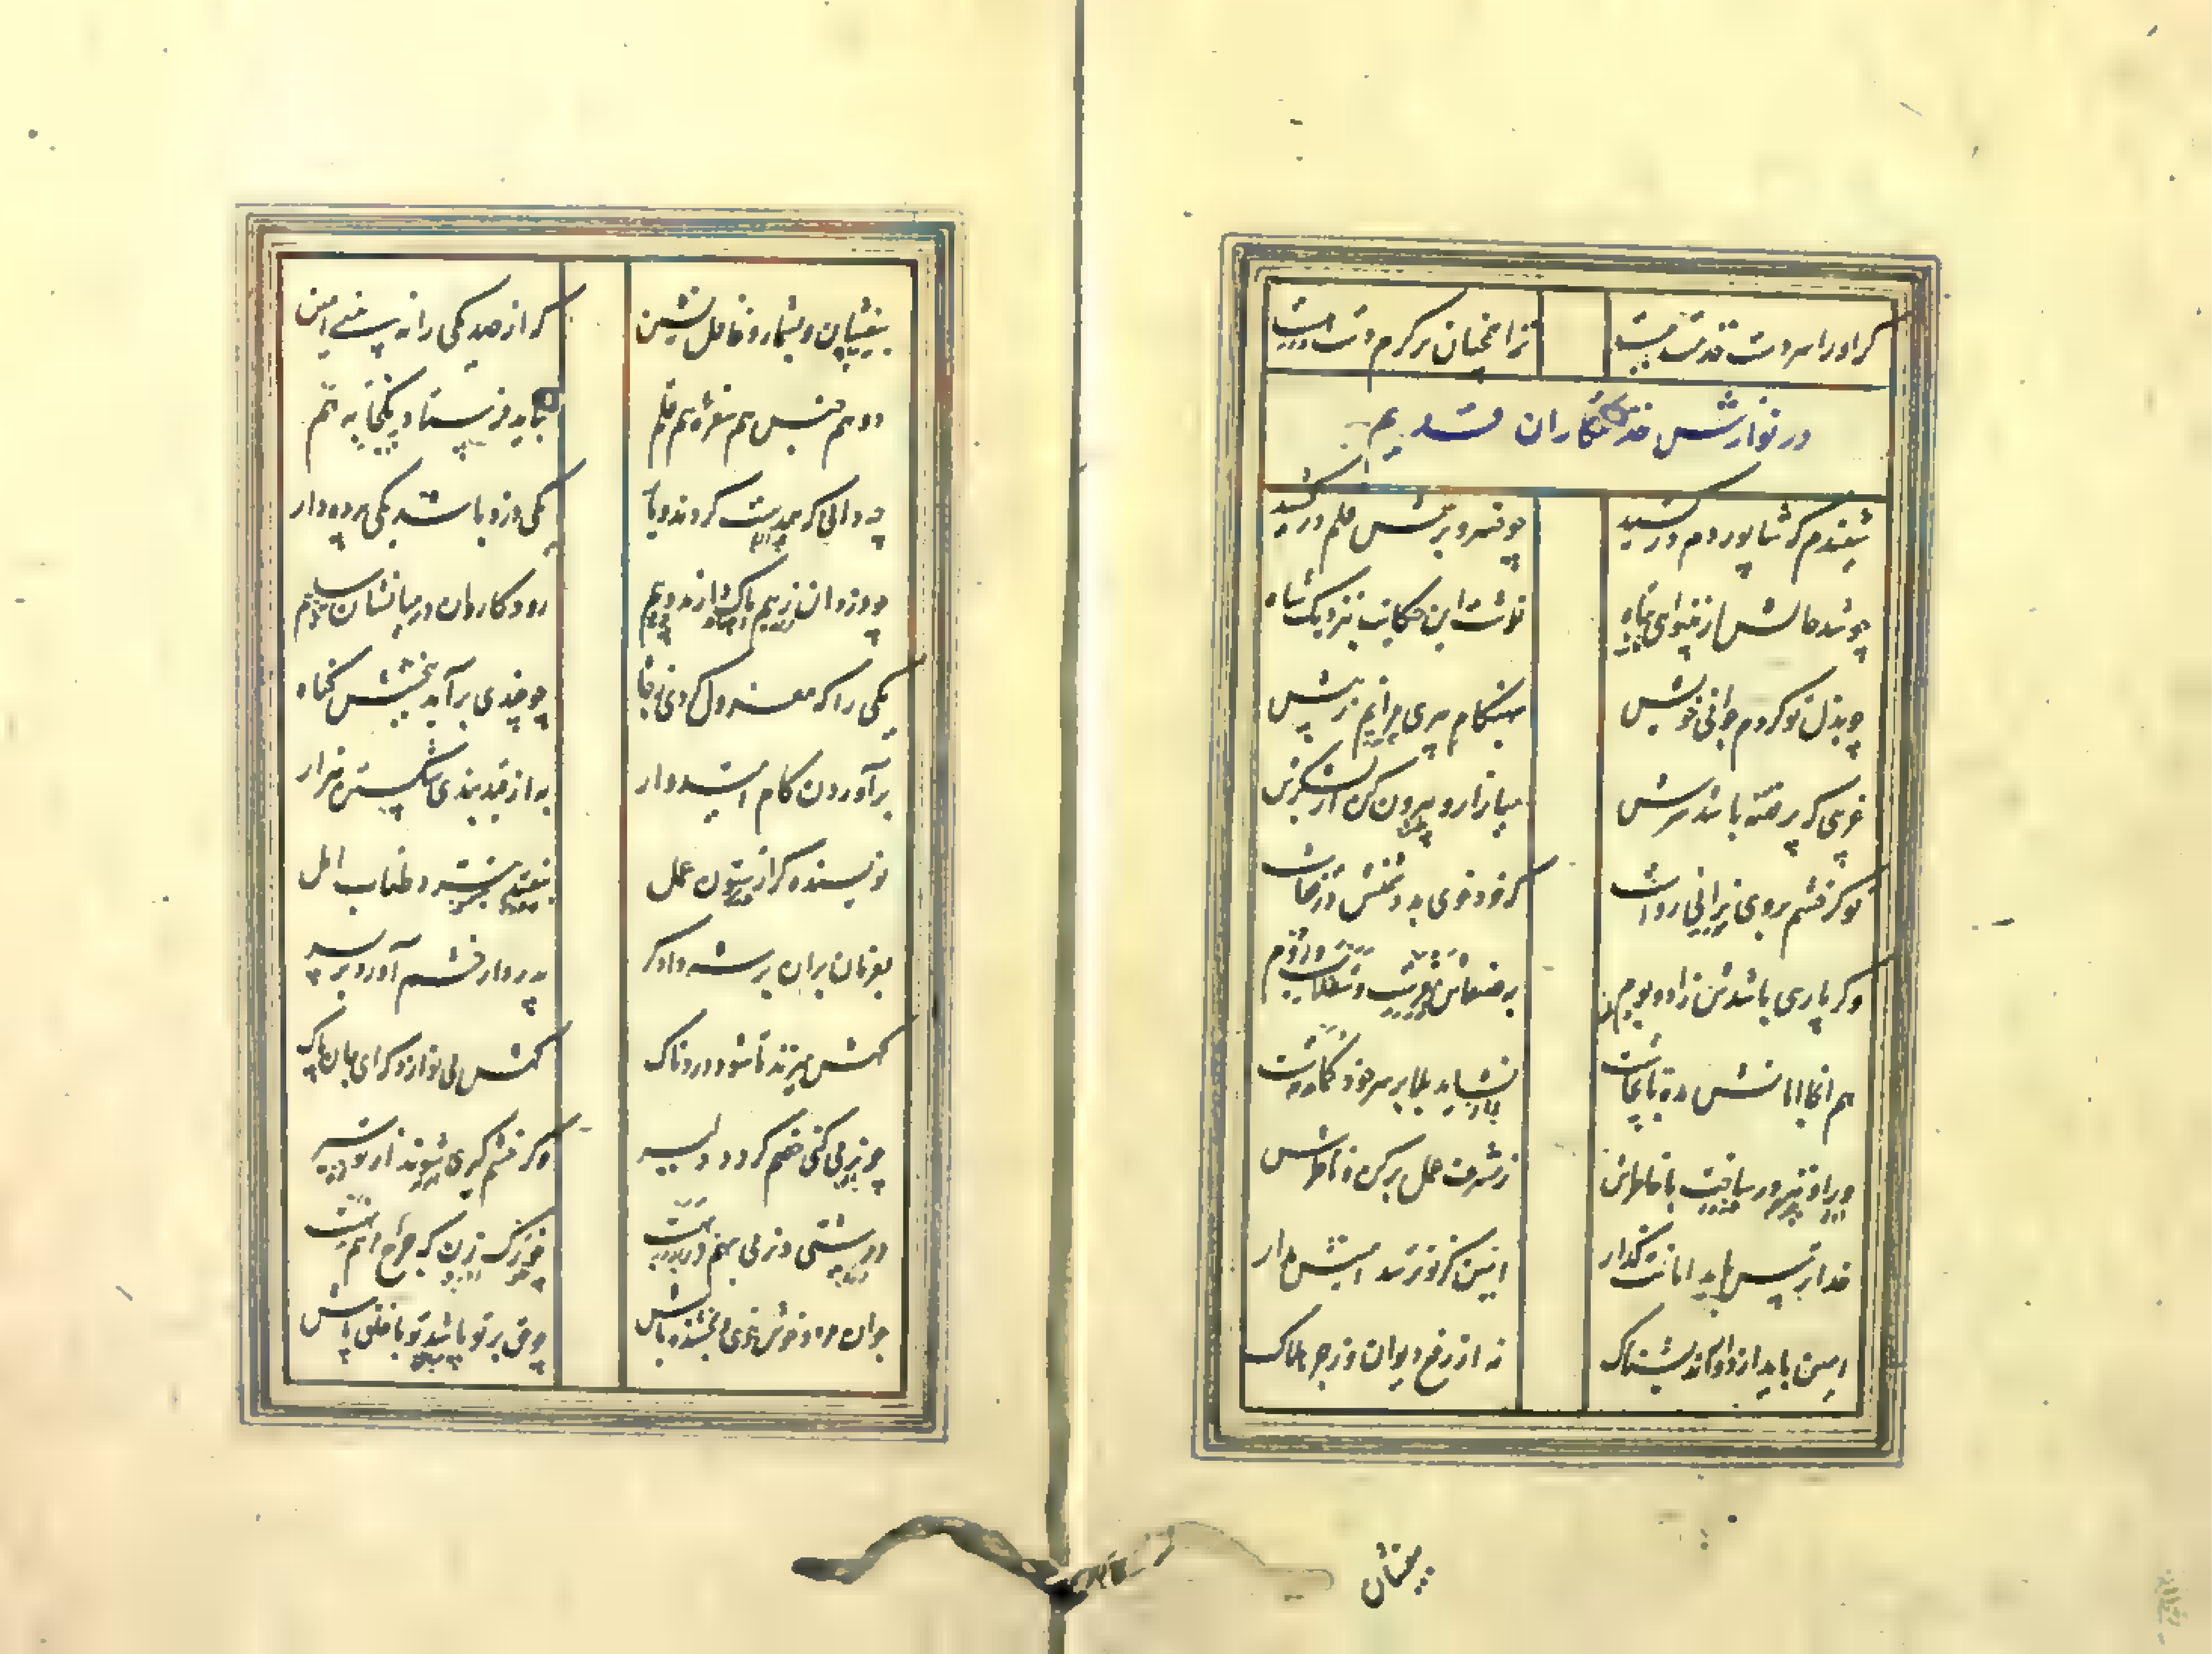 گر او را هرم دست خدمت ببست ترا همچنان بر کرم دست هست
در نوازش خدمتکاران قدیم
شنیدم که شاپور دم در کشید چو خسرو برسمش قلم در کشید
چو شد حالش از بینوائی تباه نوشت این حکایت بنزدیک شاه
چو بذل تو کردم جوانی خویش بهنگام پیری مرانم ز پیش
غریبی که پر فتنه باشد سرش میازار و بیرون کن از کشورش
تو گر خشم بروی نرانی رواست که خود خوی بد دشمنش در قفاست
وگر پارسی باشدش زاد و بوم بصنعاش مفرست و سقلاب و روم
هم آنجا امانش مده تا بچاشت نشاید بلا بر سر خود گماشت
ز مشرف عمل بر کن و ناظرش
خدا ترس باید امانت گذار امین کز تو ترسد امینش مدار
امین باید از داور اندیشناک نه از رفع دیوان و زجر هلاک
بیفشان
بیفشان و بشمار و غافل نشین که از صد یکی را نه بینی امین
دو هم جنس هم سفره هم قلم نباید فرستاد یکجا بهم
چه دانی که همدست گردند و یار یکی دزد باشد یکی پرده دار
چو دزدان ز هم باک دارند و بیم رود کاروان در میانشان سلیم
یکی را که معزول کردی ز جاه چو چندی برآید ببخشش گناه
برآوردن کام امیدوار به از قید بندی شکستن هزار
نویسنده را گر ستون عمل بیفتد نبرد طناب امل
بفرمان بران بر شه دادگر پدروار خشم آورد بر پسر
گهش میزند تا شود دردناک گهی میکند آبش از دیده پاک
چو نرمی کنی خصم گردد دلیر وگر خشم گیری شوند از تو سیر
درشتی و نرمی بهم در بهست چو رگ زن که جراح و مرهم نهست
جوانمرد و خوشخوی و بخشنده باش چو حق بر تو پاشد تو با خلق پاش